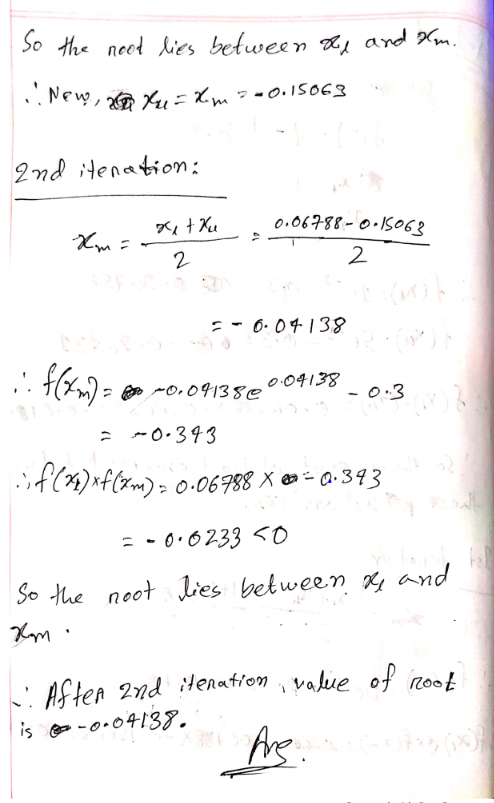 So the root lies between xl and xm.
∴ New, xu = xm = -0.15063
2nd iteration:
xm = (xl + xu)/2 = (0.06788 - 0.15063)/2
= - 0.04138
∴ f(xm) = -0.04138e^0.04138 - 0.3
= -0.343
∴ f(xl)×f(xm) = 0.06788 × -0.343
= - 0.0233 <0
So the root lies between xl and
xm.
∴ After 2nd iteration, value of root
is -0.04138.
Ans.